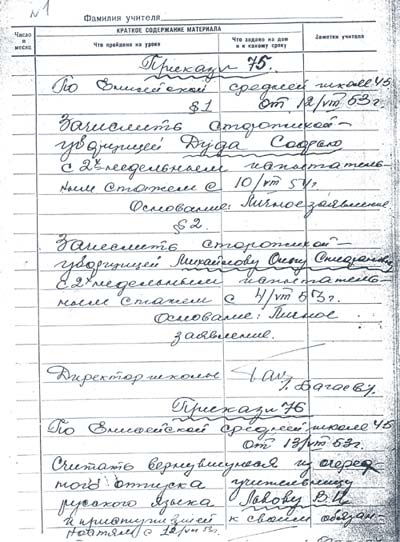 №1
Фамилия учителя
Число и месяц
КРАТКОЕ СОДЕРЖАНИЕ МАТЕРИАЛА
Что пройдено на уроке
Что задано на дом и к какому сроку
Заметки учителя
Приказ 75.
По Елисейской средней школе 45
§1 от 12/VIII 53 г.
Зачислить сторожихой-
уборщицей Дуда Софью
с 2х недельным испытатель-
ным стажем с 10/VIII 57 г.
Основание: Личное заявление
§2.
Зачислить сторожихой-
уборщицей Михайлову Степановну
с 2х недельным испытатель-
ным стажем с 4/VIII 53 г.
Основание: Личное
заявление.
Директор школы /. Багаев/.
Приказ 76
По средней школе 45
от 13/VIII 53 г.
Считать вернувшуюся из очеред
ного отпуска учительницу
русского языка Львову В.И.
и приступившей к своим обязан-
ностям с 12/VIII 53 г.